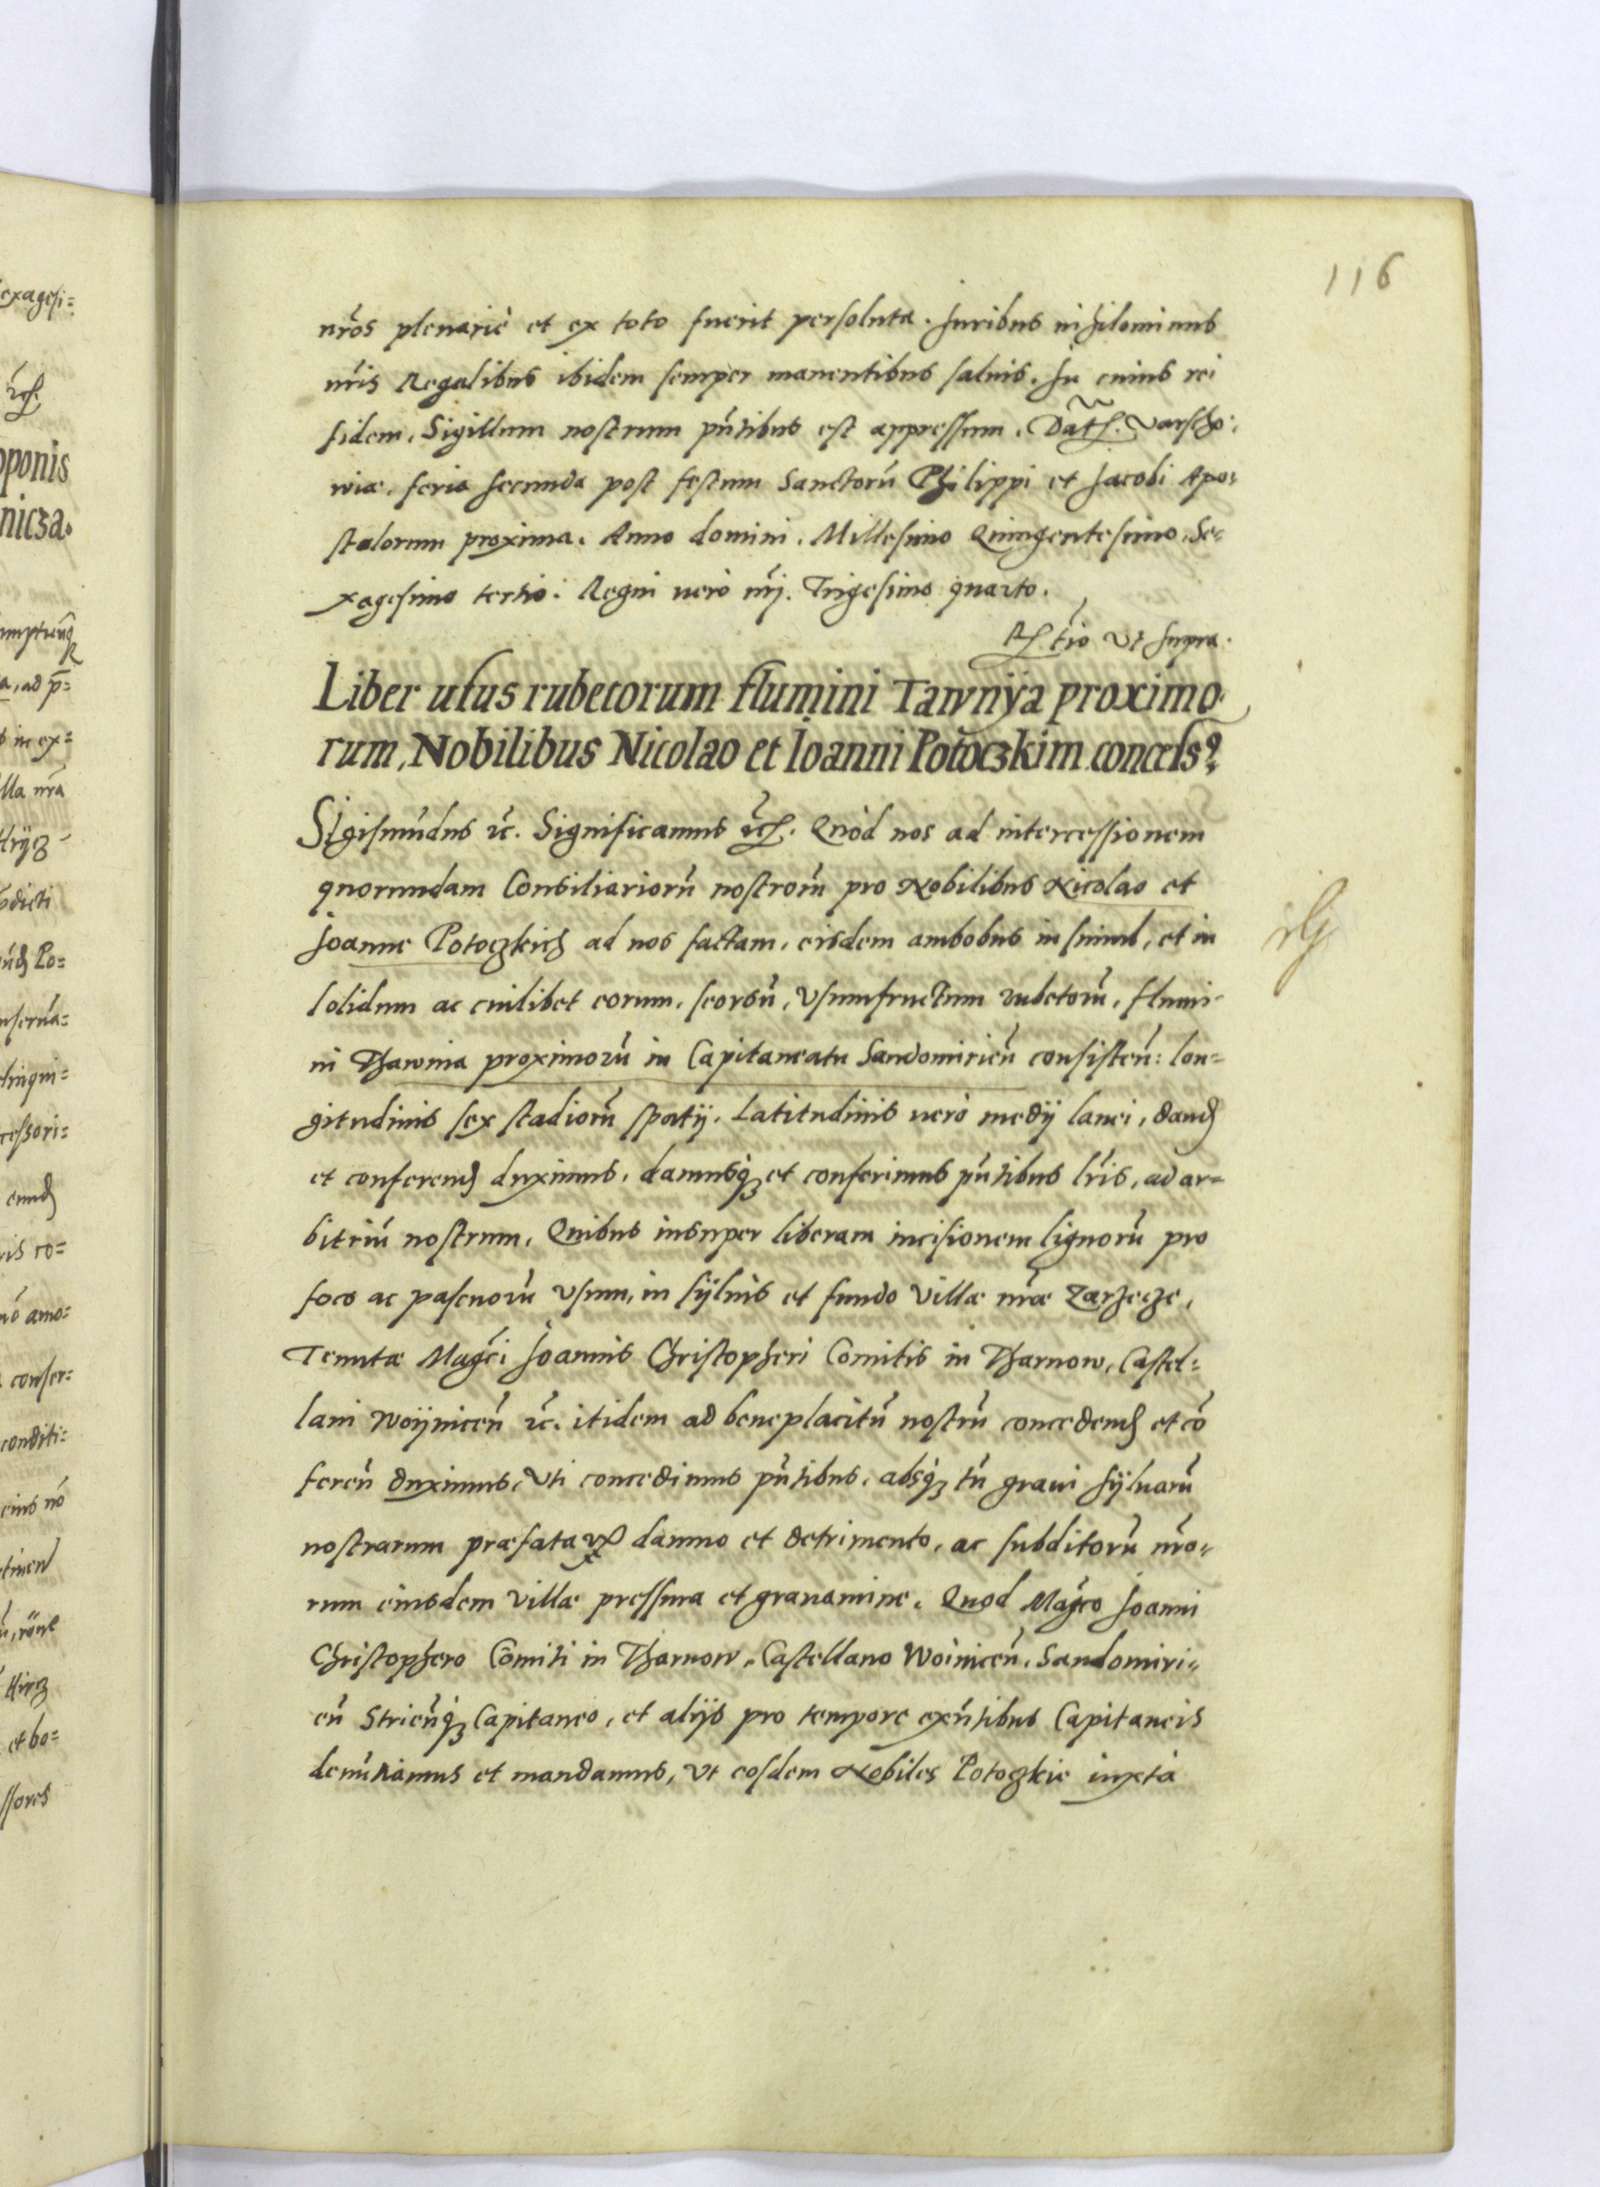 116
nr̃os plenariè et ex toto fuerit persoluta. Iuribus nihilominus
nr̃is Regalibus ibidem semper manentibus saluis. In cuius rei
fidem, Sigillum nostrum pñtibus est appressum. Dat. Varscho-
wiæ. feria secunda post festum Sanctorũ Philippi et Iacobi Apo-
stolorum proxima. Anno domini. Millesimo Quingentesimo. Se-
xagesimo tertio. Regni uerò nr̃j. Trigesimo quarto.
Rtio ut supra.
Liber usus rubetorum flumini Tawnÿa proximo-
rum, Nobilibus Nicolao et Ioanni Potoczkim concess9.
Sigismũdus &c. Significamus &c. Quòd nos ad intercessionem
quorundam Consiliariorũ nostrorũ pro Nobilibus Nicolao et
Ioanne Potoczkich ad nos factam, eisdem ambobus in simul, et in
solidum ac cuilibet eorum, seorsũ, Vsumfructum rubetorũ, flumi-
ni Thawnia proximorũ in Capitaneatu Sandomirieñ consisteñ: lon-
gitudinis sex stadiorũ spatij. Latitudinis uerò medij lanei, dand
et conferend duximus. damusq; et conferimus pñtibus lr̃is, ad ar-
bitriũ nostrum. Quibus insuper liberam incisionem lignorũ pro
foco ac pascuorũ vsum, in sÿluis et fundo Villæ nr̃æ Zarzecze,
Tenutæ Magci Ioannis Christopheri Comitis in Tharnow, Castel-
lani Woÿniceñ &c. itidem ad beneplacitũ nostrũ concedend et cõ
fereñ duximus, Vti concedimus pñtibus. absq; tñ graui sÿluarũ
nostrarum præfatarum damno et detrimento, ac subditorũ nr̃o-
rum eiusdem Villæ pressura et grauamine. Quod Magco Ioanni
Christophero Comiti in Tharnow, Castellano Woiniceñ, Sandomiri-
eñ Strieñq; Capitaneo, et alijs pro tempore exñtibus Capitaneis
denũtiamus et mandamus, Vt eosdem Nobiles Potoczkie iuxtà
exagesi-
oponis
nicza.
a, ad p̃-
in ex-
lla nr̃a
dicti
Po-
nserua-
linqui-
cessori-
eund
ris co-
nõ amo-
confer-
conditi-
eius nõ
et bo-
ssores